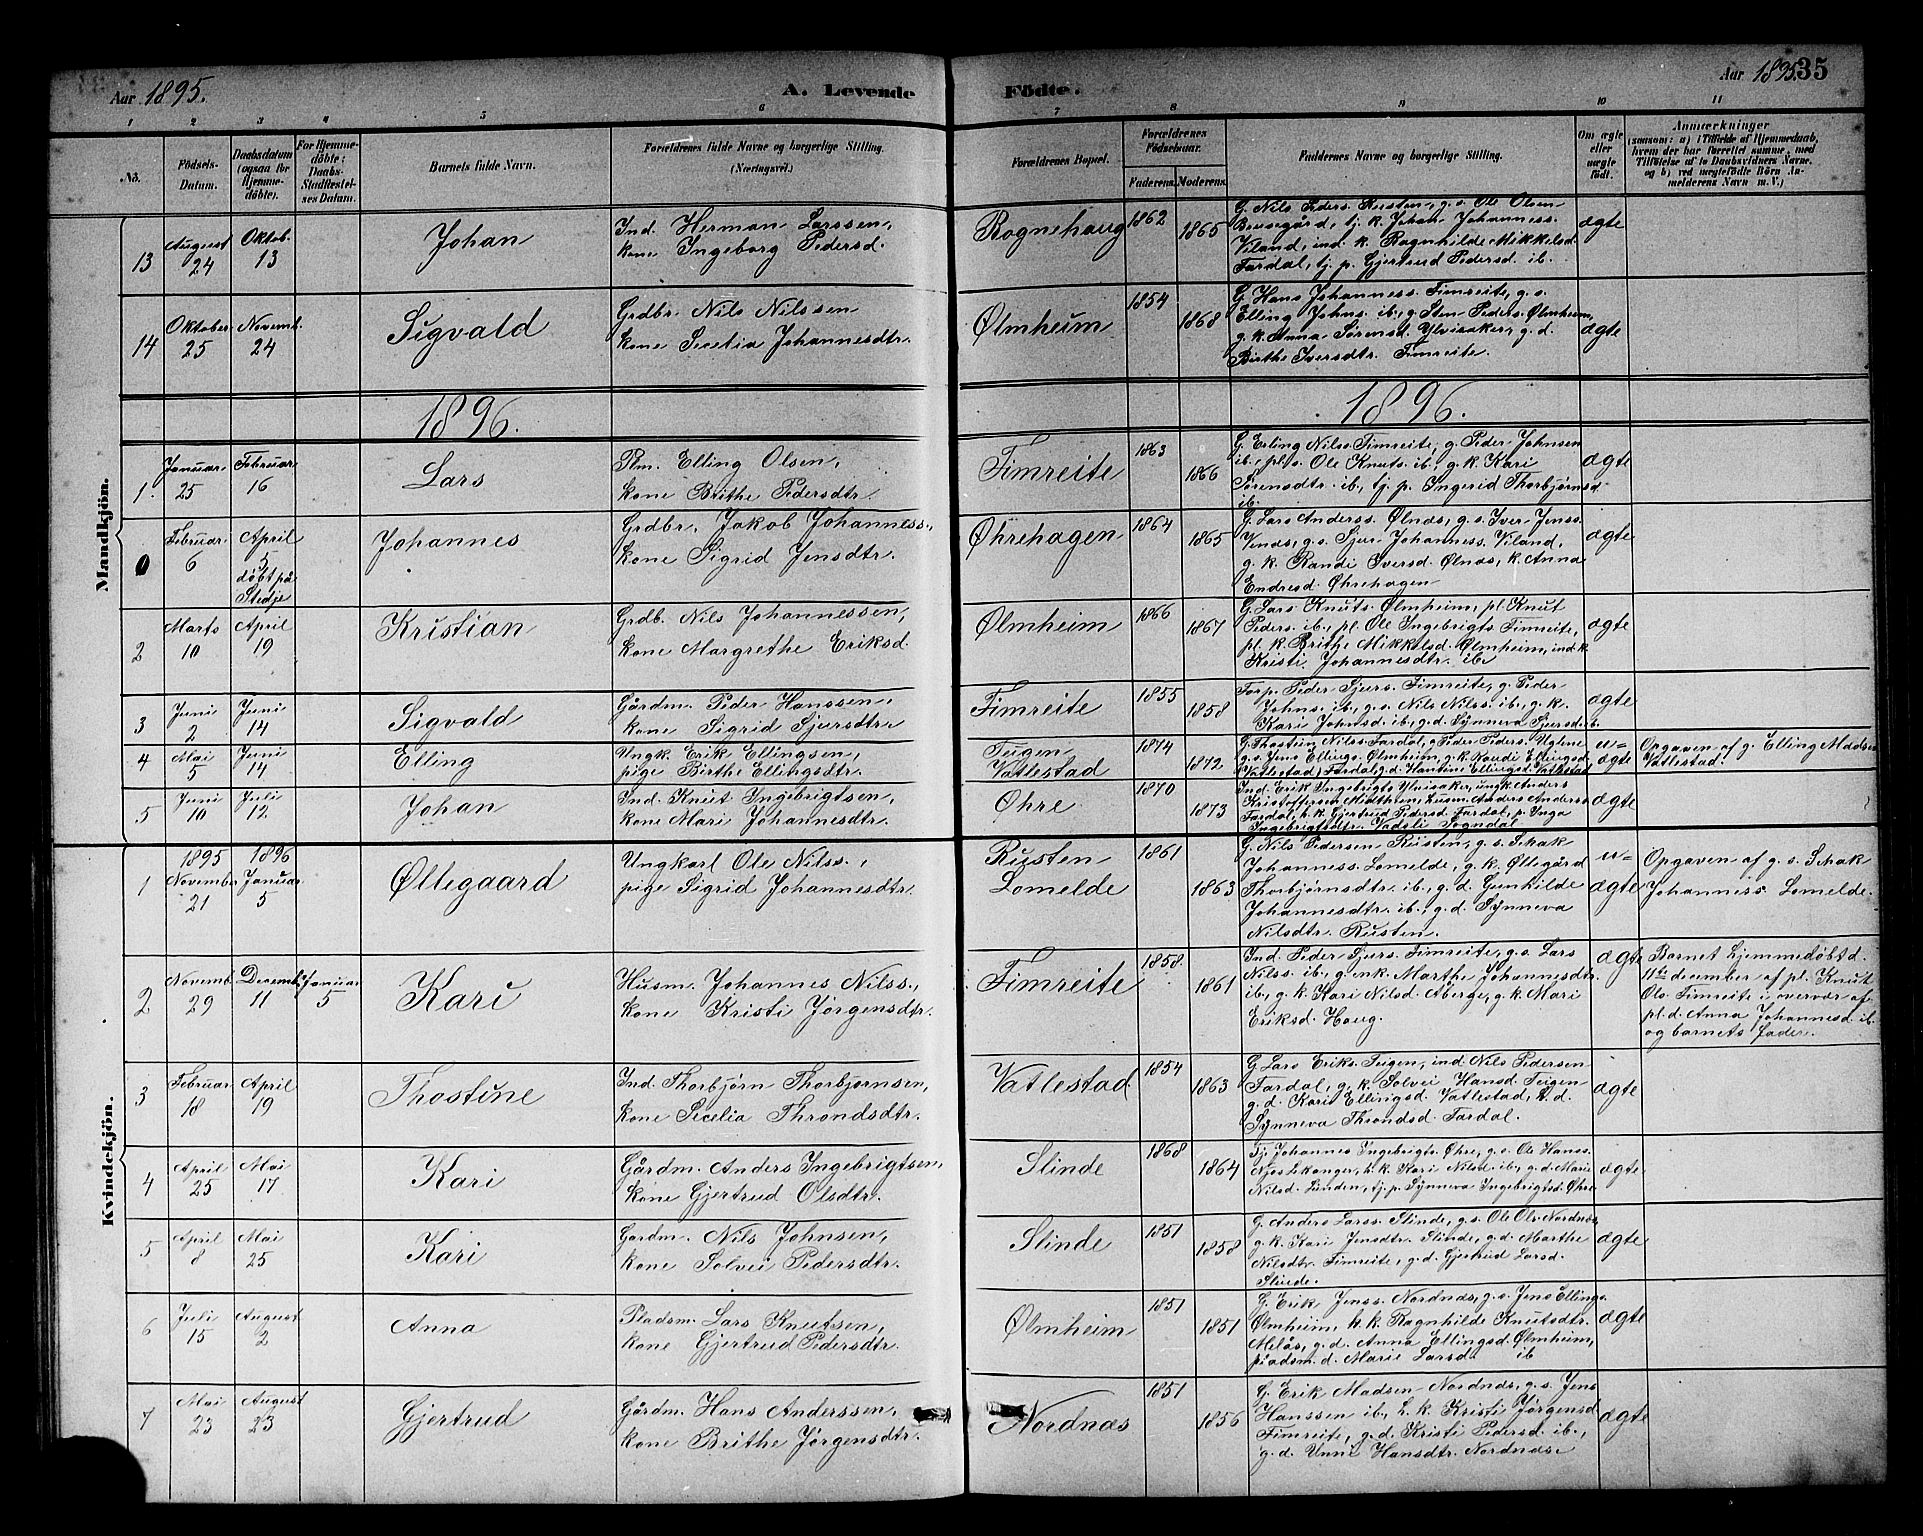 Aar 1895.
A. Levende Födte.
Aar 1895. 35
1 2 3 4 5 6 7 8 9 10 11
No.
Födsels-Datum.
Daabsdatum (ogsaa for Hjemmedöbte).
For Hjemmedöbte: Daabs-Stadfæstelses Datum.
Barnets fulde Navn.
Forældrenes fulde Navne og borgerlige Stilling.
(Næringsvei.)
Forældrenes Bopæl.
Forældrenes Födselsaar.
Faderens. Moderens.
Faddernes Navne og borgerlige Stilling.
Om ægte eller uægte födt.
Anmærkninger
(saasom: a) i Tilfælde af Hjemmedaab, hvem der har forrettet samme, med Tilföielse af to Daabsvidners Navne, og b) ved uægtefödte Börn Anmelderens Navn m. V.)
Mandkjön.
13 August 24 Oktob. 13 Johan
Ind. Herman Larssen,
kone Ingeborg Pedersd.
Rognehaug 1862 1865
G. Nils Peders. Rusten, g. s. Ole Olsen
Bousgård, tj. k. Johan Johanness.
Viland, ind. k. Ragnhilde Mikkelsd.
Fardal, tj. p. Gjertrud Pedersd. ib.
ægte
14 Oktober 25 Novemb. 24 Sigvald
Grdbr. Nils Nilssen
kone Secelia Johannesdtr.
Ølmheim 1854 1868
G. Hans Johanness. Fimreite, g. s.
Elling Johns. ib., g. Sten Peders. Ølmheim,
g. k. Anna Sørensd. Ylvisaker, g. d.
Birthe Iversdtr. Fimreite.
ægte
1896. 1896.
1. Januar 25 Februar 16 Lars
Pm. Elling Olsen,
kone Brithe Pedersdtr.
Fimreite 1863 1866
G. Erling Nilss. Fimreite, g. Peder Johnsen
ib., pl. s. Ole Knuts. ib., g. k. Kari
Sørensdtr. ib., tj. p. Ingerid Thorbjørnsd.
ib.
ægte
0 Februar 6 April 5 døbt på Stedje Johannes
Grdbr. Jakob Johanness.,
kone Sigrid Jensdtr.
Øhrehagen 1864 1865
G. Lars Anderss. Ølnæs, g. s. Iver Jenss.
Venæs, g. s. Sjur Johanness. Viland,
g. k. Randi Iversd. Ølnæs, k. Anna
Endresd. Øhrehagen
ægte
2 Marts 10 April 19 Kristian
Grdb. Nils Johannessen,
kone Margrethe Eriksd.
Ølmheim 1866 1867
G. Lars Knuts. Ølmheim, pl. Knut
Peders. ib., pl. Ole Ingebrigts. Fimreite,
pl. k. Brithe Mikkelsd. Ølmheim, ind. k.
Kristi Johannesdtr. ib.
ægte
3 Juni 2 Juni 14 Sigvald
Gårdm. Peder Hanssen,
kone Sigrid Sjursdtr.
Fimreite 1855 1858
Forp. Peder Sjurs. Fimreite, g. Peder
Johns. ib., g. s. Nils Nilss. ib., g. k.
Kari Johnsd. ib., g. d. Synneva Sjursd. ib.
ægte
4 Mai 5 Juni 14 Elling
Ungk. Erik Ellingsen,
pige Birthe Ellingsdtr.
Teigen
Vatlestad 1874 1872
G. Thostein Nilss. Fardal, g. Peder Peders. Uglene
g. s. Jens Ellings. Ølmheim, g. k. Randi Ellingsd.
(Vatlestad) Fardal, g. d. Hantine Ellingsd. Vatlestad
u=
ægte
Opgaven af g. Elling Madsen
Vatlestad.
5 Juni 10 Juli 12 Johan
Ind. Knut Ingebrigtsen,
kone Mari Johannesdtr.
Øhre 1870 1873
Ind. Erik Ingebrigts. Ylvisaker, ungk. Anders
Kristoffersen Midthun, husm. Anders Anderss.
Fardal, h. k. Gjertrud Pedersd. Fardal, p. Inga
Ingebrigtsdtr. Vadsli Sogndal
ægte
Kvindekjön.
1 1895 November 21 1896 Januar 5 Øllegaard
Ungkarl Ole Nilss.,
pige Sigrid Johannesdtr.
Rusten
Lomelde 1861 1863
G. Nils Pedersen Rusten, g. s. Schak
Johanness. Lomelde, g. k. Øllegård
Thorbjørnsdtr. ib., g. d. Gunhilde
Johannesdtr. ib., g. d. Synneva
Nilsdtr. Rusten.
u=
ægte
Opgaven af g. s. Schak
Johanness. Lomelde.
2 Novemb. 29 Decemb. 11 Januar 5 Kari
Husm. Johannes Nilss.,
kone Kristi Jørgensdtr.
Fimreite 1858. 1861
Ind. Peder Sjurs. Fimreite, g. s. Lars
Nilss. ib., g. enk. Marthe Johannesdtr.
ib., g. k. Kari Nilsd. Åberge, g. k. Mari
Eriksd. Haug.
ægte
Barnet hjemmedøbt d.
11te december af pl. Knut
Ols. Fimreite i overvær af
pl. d. Anna Johannesd. ib.
og barnets fader.
3 Februar 18 April 19 Thostine
Ind. Thorbjørn Thorbjørnsen,
kone Secelia Throndsdtr.
Vatlestad 1854 1863
G. Lars Eriks. Teigen, ind. Nils Pedersen
Fardal, g. k. Solvei Hansd. Teigen
g. d. Kari Ellingsd. Vatlestad, h. d.
Synneva Throndsd. Fardal.
ægte
4 April 25 Mai 17 Kari
Gårdm. Anders Ingebrigtsen,
kone Gjertrud Olsdtr.
Slinde 1868 1864
Tj. Johannes Ingebrigts. Øhre, g. s. Ole Hanss.
Njøs Lekanger, h. k. Kari Nilsd. ib., g. d. Marie
Nilsd. Lunden, tj. p. Synneva Ingebrigtsd. Øhre
ægte
5 April 8 Mai 25 Kari
Gårdm. Nils Johnsen,
kone Solvei Pedersdtr.
Slinde 1851 1858
G. Anders Larss. Slinde, g. s. Ole Ols. Nordnæs,
g. k. Kari Jensdtr. Slinde, g. d. Marthe
Nilsdtr. Fimreite, g. d. Gjertrud Larsd.
Slinde.
ægte
6 Juli 15 August 2 Anna
Pladsm. Lars Knutsen,
kone Gjertrud Pedersdtr.
Ølmheim 1851 1851
G. Erik Jenss. Nordnæs, g. s. Jens Ellings.
Ølmheim, h. k. Ragnhilde Knutsdtr.
Melås, g. d. Anna Ellingsd. Ølmheim,
pladsm. d. Marie Larsd. ib
ægte
7 Mai 23 August 23 Gjertrud
Gårdm. Hans Anderssen,
kone Brithe Jørgensdtr.
Nordnæs 1851 1856
G. Erik Madsen Nordnæs, g. s. Jens
Hanssen ib., h. k. Kristi Jørgensd.
Fimreite, g. d. Kristi Pedersd. ib.,
g. d. Unni Hansdtr. Nordnæs.
ægte